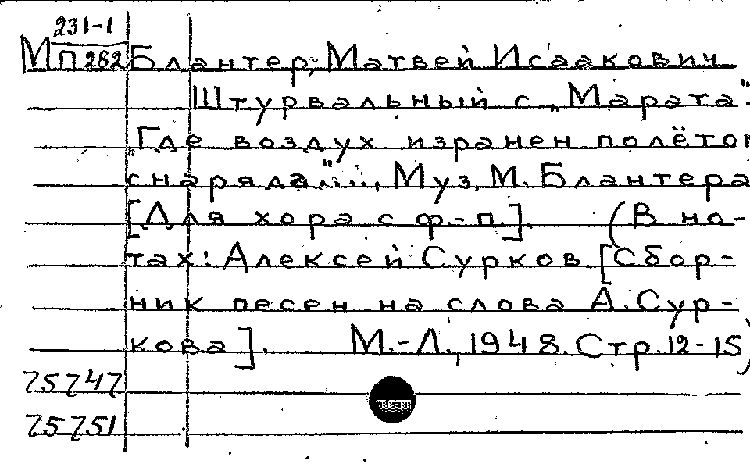 231-1
М П 262 Блантер, Матвей Исаакович
Штурвальный с „Марата".
„Где воздух изранен полётом
снаряда"..., Муз. М. Блантера
[Для хора с ф-п]. (В но-
тах: Алексей Сурков [Сбор-
ник песен на слова А. Сур-
кова]. М.-Л., 1948. Стр. 12-15)
75747
75751